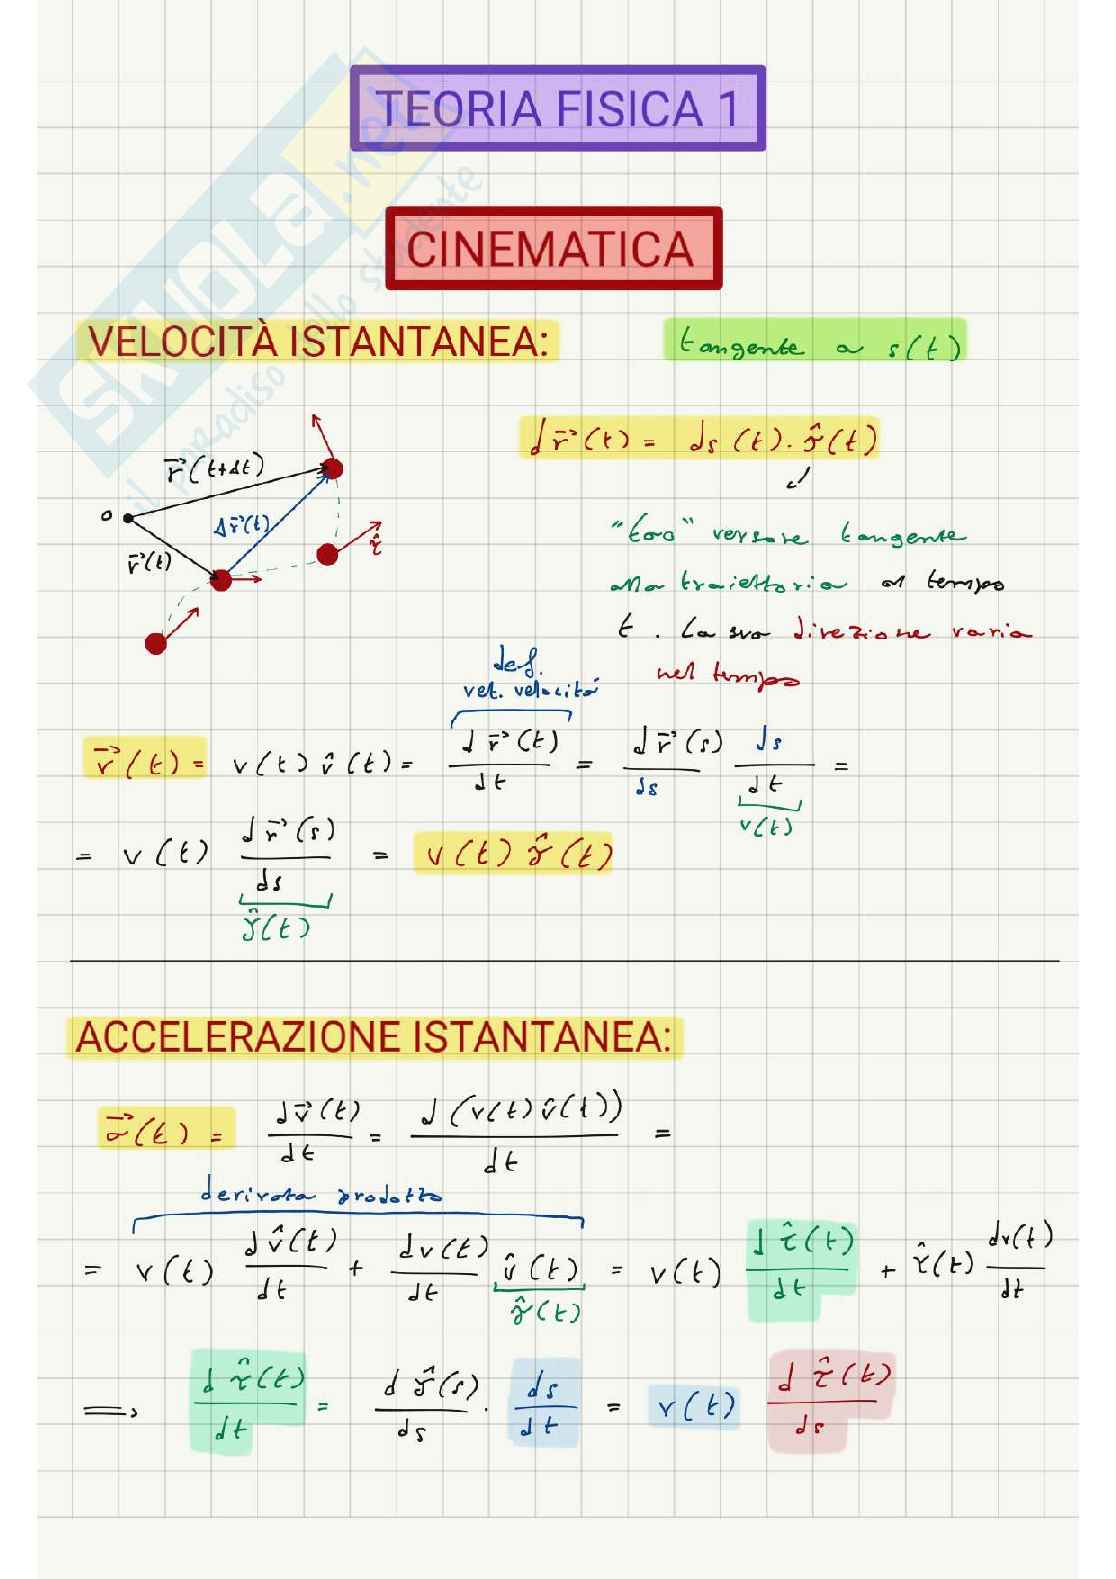 TEORIA FISICA 1
CINEMATICA
SKUOLA.net
il paradiso dello studente
VELOCITÀ ISTANTANEA:
tangente a s(t)
d r⃗(t) = ds(t) · τ̂(t)
r⃗(t+dt)
o
Δr⃗(t)
τ̂
r⃗(t)
"tao" versore tangente
alla traiettoria al tempo
t. La sua direzione varia
nel tempo
def.
vet. velocità
v⃗(t) = v(t) v̂(t) = d r⃗(t) / dt = d r⃗(s) / ds ds / dt =
v(t)
= v(t) d r⃗(s) / ds = v(t) τ̂(t)
τ̂(t)
ACCELERAZIONE ISTANTANEA:
a⃗(t) = d v⃗(t) / dt = d (v(t) v̂(t)) / dt =
derivata prodotto
= v(t) d v̂(t) / dt + dv(t) / dt v̂(t) = v(t) d τ̂(t) / dt + τ̂(t) dv(t) / dt
τ̂(t)
⟹ d τ̂(t) / dt = d τ̂(s) / ds · ds / dt = v(t) d τ̂(t) / ds